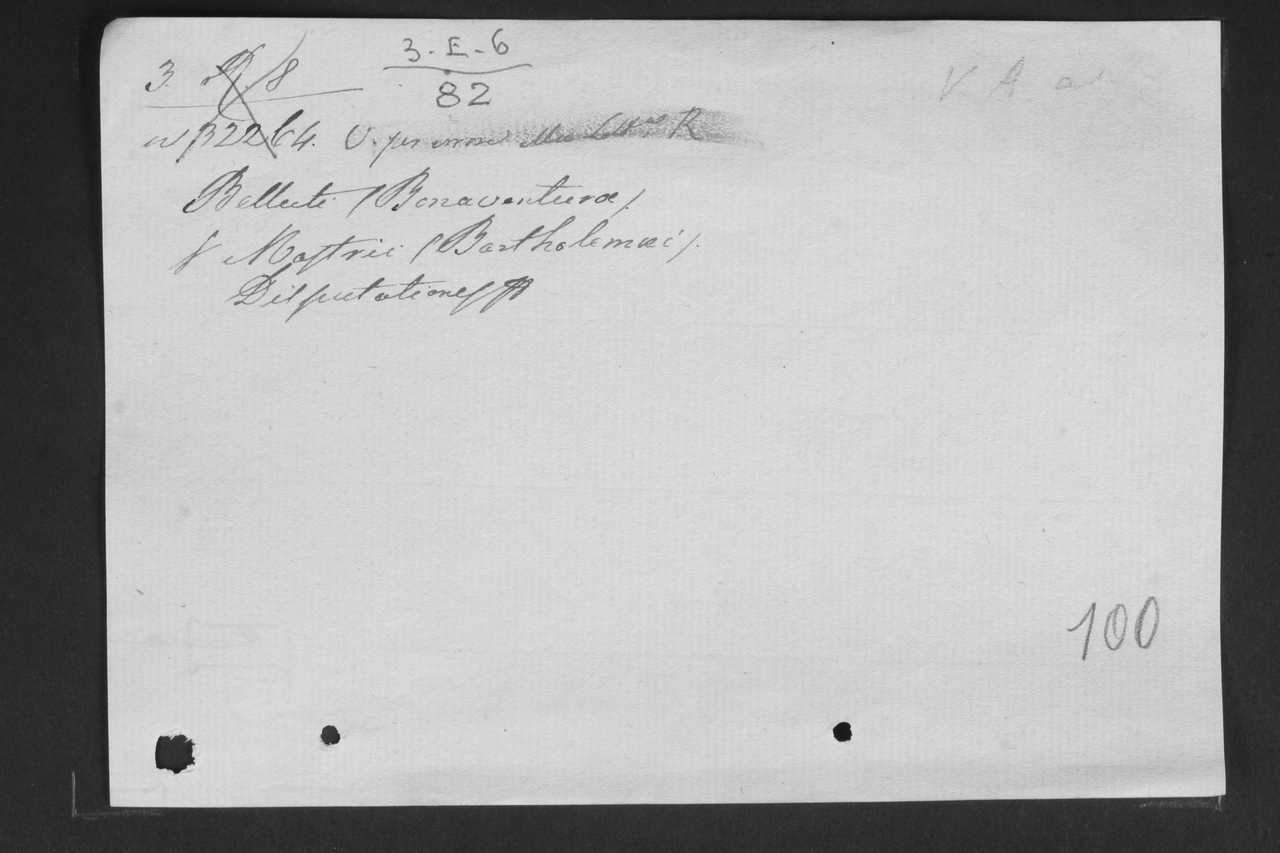 3. 8
3-E-6
82
V A
32264. V. per errore
Bellute (Bonaventuræ)
& Mastrii (Bartholomæi).
Disputationes
100